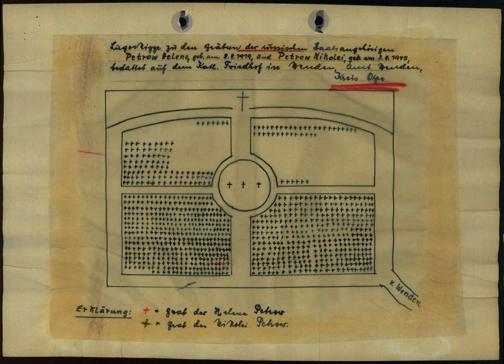 Lageskizze zu den Gräbern der russischen Staatsangehörigen
Petrow Helene, geb. am 2.8.1919, und Petrow Nikolei, geb. am
bestattet auf dem Kath. Friedhof in Wenden, Amt Wenden,
Kreis Olpe.
n. Wenden.
Erklärung: + = Grab der Helene Petrow
+ = Grab des Nikolei Petrow.